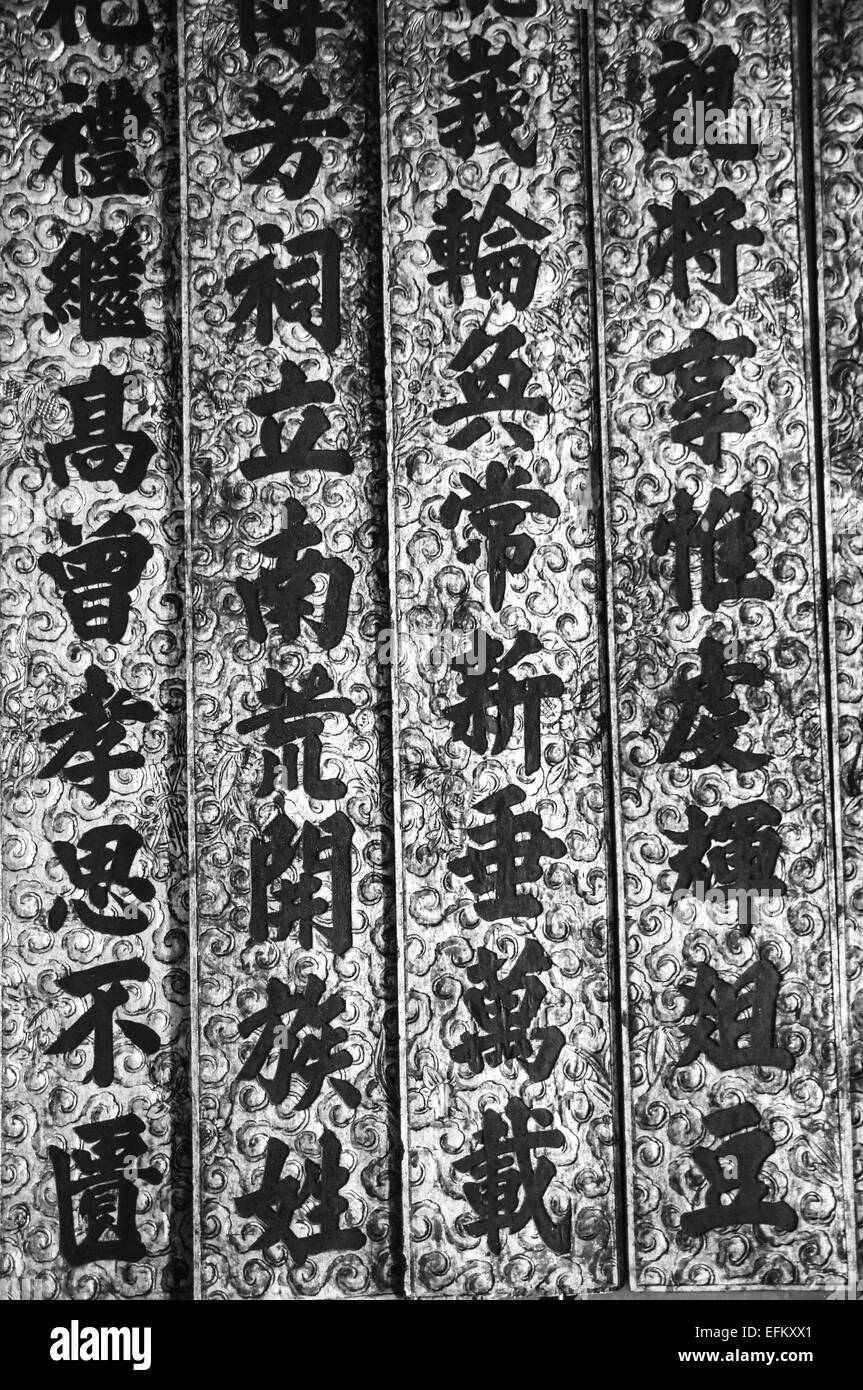 觀將享惟虔輝俎豆
峩輪奐常新垂萬載
芳祠立南荒開族姓
禮繼高曾孝思不匱
alamy
Image ID: EFKXX1
www.alamy.com